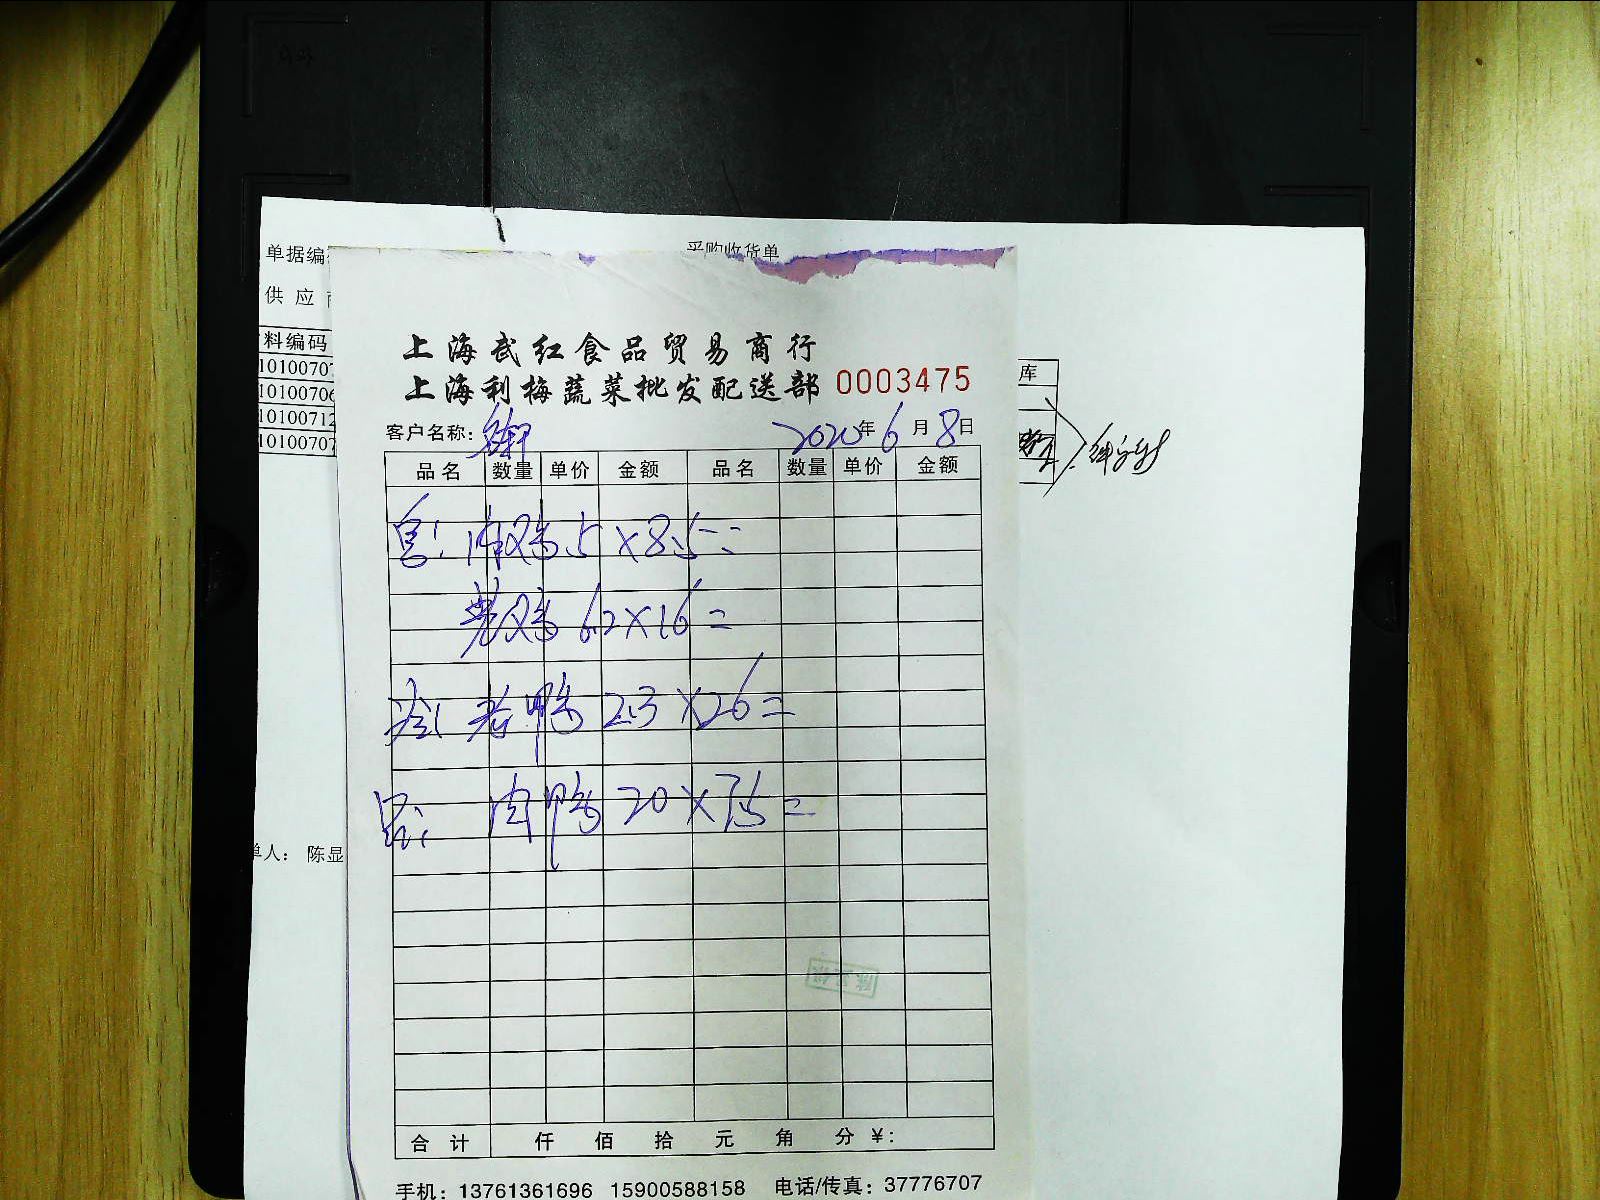 单据编
采购收货单
供 应
料编码
10100707
10100706
10100712
10100707
库
单人： 陈显
上海武红食品贸易商行
上海利梅蔬菜批发配送部 0003475
客户名称： 2020年6月8日
品名 数量 单价 金额 品名 数量 单价 金额
鸡 5×8.5=
老鸡 6.2×16=
老鸭 2.3×26=
肉鸭 20×7.5=
合计 仟 佰 拾 元 角 分 ￥:
手机：13761361696 15900588158 电话/传真：37776707